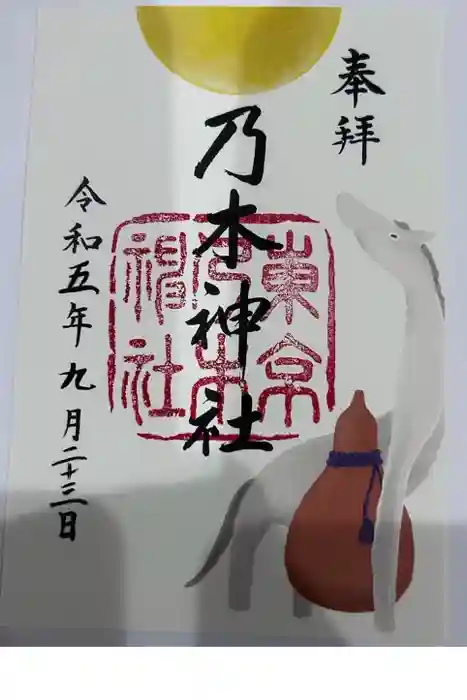 奉拝
乃木神社
東京
乃木
神社
令和五年九月二十三日